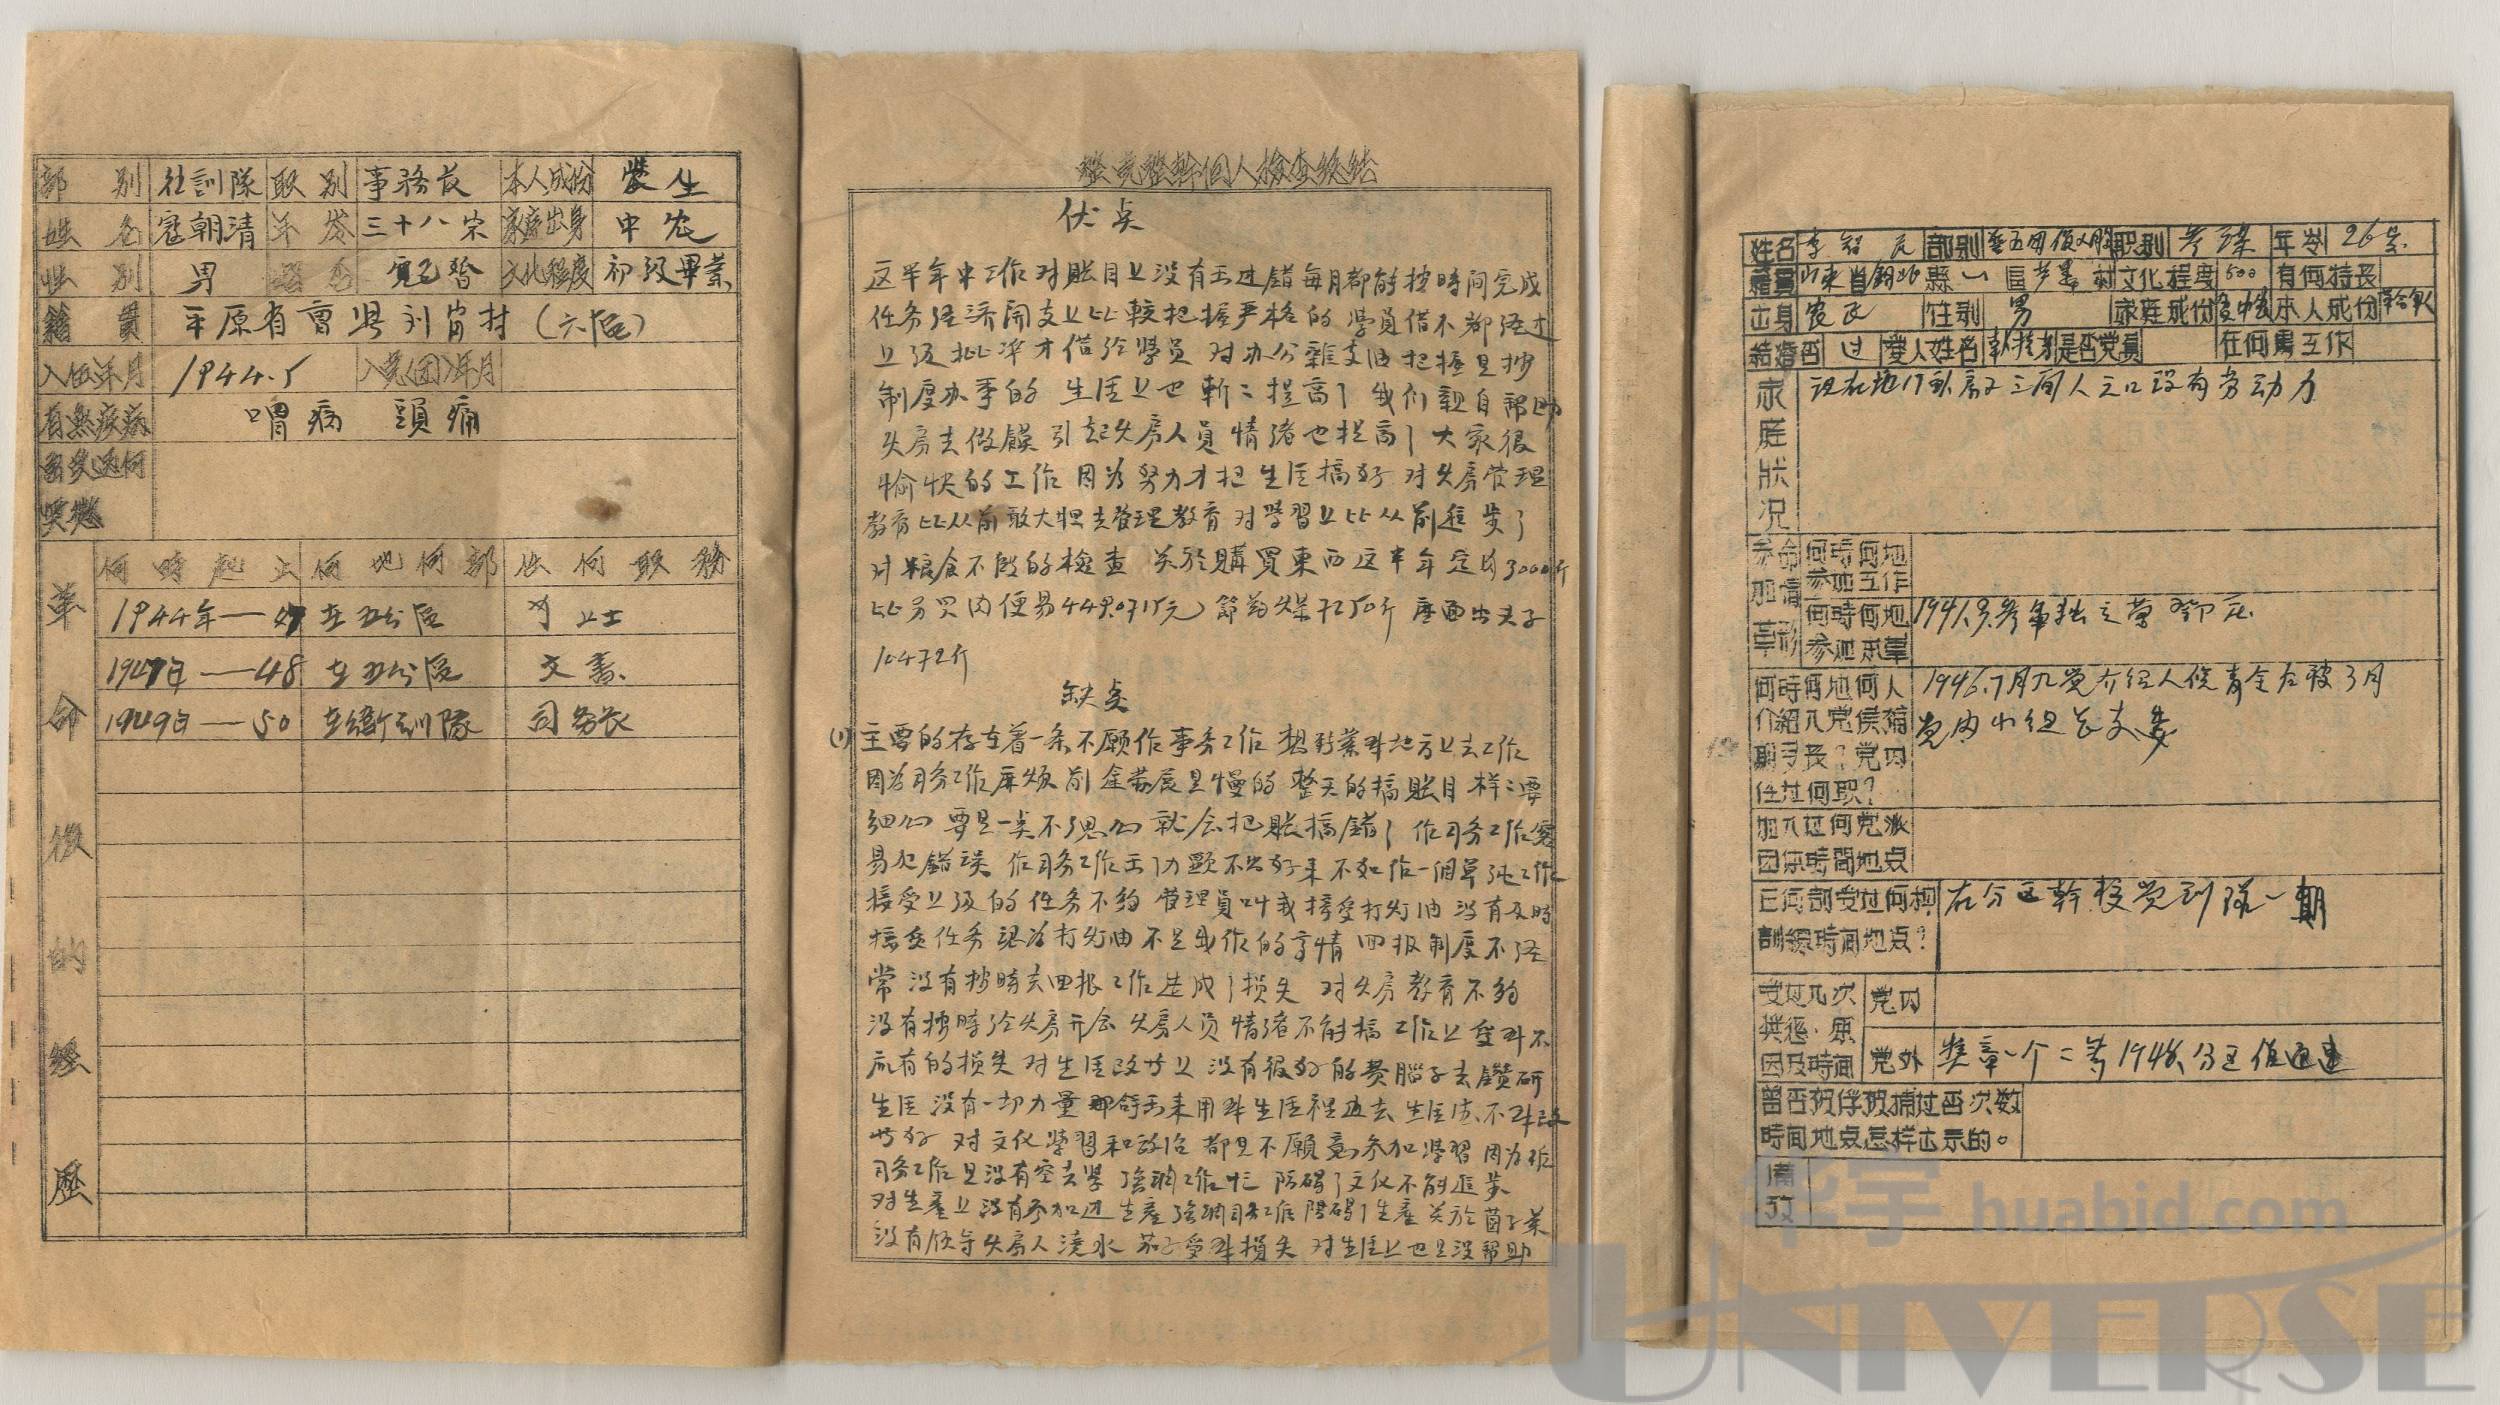 部别 社訓隊 职别 事務長 本人成份 學生
姓名 寇朝清 年岺 三十八岁 家庭出身 中农
性别 男 文化程度 初级畢業
籍貫 平原省曹县刘岗村(六区)
入伍年月 1944.5 入党(团)年月
有無疾病 喟病 頭痛
曾受过何
奖惩
革命後的経歷
何時起止 何地何部 任何职務
1944年—47 在五分区 上士
1947年—48 在五分区 文書
1949年—50 在衛训隊 司务长
整党整幹個人檢查総结
伏点
这半年中工作对賬目上没有出过错每月都能按時间完成
任务经济開支上比較把握严格的 学員借不都经过
上级批準才借给學员 对办公雜支油把握是抄
制度办事的 生活上也斩〻提高了 我们親自帮助
伙房去做饃 引起伙房人員情绪也提高了 大家很
愉快的工作 因为努力才把生活搞好 对伙房管理
教育比从前敢大胆去管理教育 对學習上比从前進步了
对粮食不断的检查 关於購買東西这半年定约3000斤
比另买肉便易449.0715元) 節约煤7250斤 磨面出夫子
10472斤
缺点
(1)主要的存在着一条不願作事务工作 想到業科地方上去工作
因为司务工作麻烦前途发展是慢的 整天的搞賬目样〻要
细心 要是一类不细心就会把賬搞错了 作司务工作容
易犯錯误 作司务工作出力顕不出好来 不如作一個單純工作
接受上级的任务不夠 管理員叫我接受打灯油 没有及時
接受任务 認为打灯油不是我作的亨情 回报制度不经
常 没有按時去回报工作造成了损失 对伙房教育不夠
没有按時给伙房开会 伙房人员情绪不能搞 工作上受到不
应有的损失 对生活改善上没有很好的费腦子去鑽研
生活 没有一切力量都拿出来用到生活裡边去 生活法不到改
善好 对文化學習和政治都是不願意参加學習 因为作
司务工作是没有空去學 強調工作忙 防碍了文化不能進步
对生産上没有参加过生産 強調司务工作防碍了生産 关於茴子菜
没有领导伙房人澆水 茄子受到損失 对生活上也是没帮助
姓名 李绍 部别 职别 参谋 年岺 26岁
籍貫 山東省 縣一區 村 文化程度 500 有何特長
出身 农民 性别 男 家庭成份 本人成份
結婚否 过 愛人姓名 是否党員 在何處工作
家庭狀况
现在地17亩房子三间人三口没有劳动力
参加革命情形
何時何地
参加工作
何時何地
参加武革
1941.9.参軍独立营
何時何地何人
介紹入党侯補
期多長?党内
任过何职?
1946.7月入党介绍人侯 候补3月
党内小组长支委
加入过何党派
団体時間地点
在何部受过何种
訓練時间地点?
在分区幹校党训隊一期
受过几次
奖惩.原
因及時间
党内
党外
奖章一个二等1948.分区
曾否被俘被捕过否次数
時间地点怎样出示的。
備攷
华宇 huabid.com
UNIVERSE